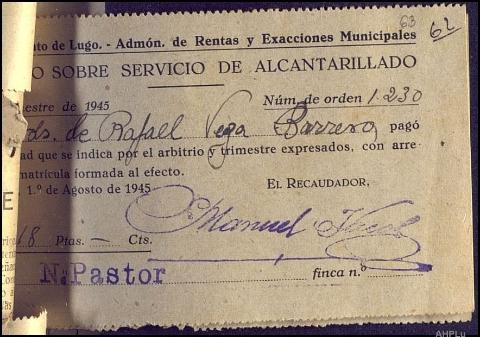 63
62
nto de Lugo. - Admón. de Rentas y Exacciones Municipales
O SOBRE SERVICIO DE ALCANTARILLADO
mestre de 1945 Núm. de orden 1.230
ds. de Rafael Vega Barrera pagó
ad que se indica por el arbitrio y trimestre expresados, con arre
matrícula formada al efecto.
1.º de Agosto de 1945
EL RECAUDADOR,
Manuel
8 Ptas. — Cts.
N. Pastor finca n.º
AHPLu